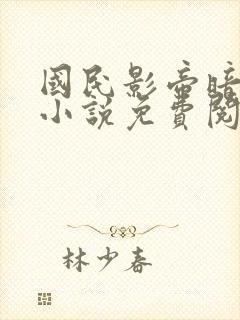 國民影帝暗
小說免費閱
林少春